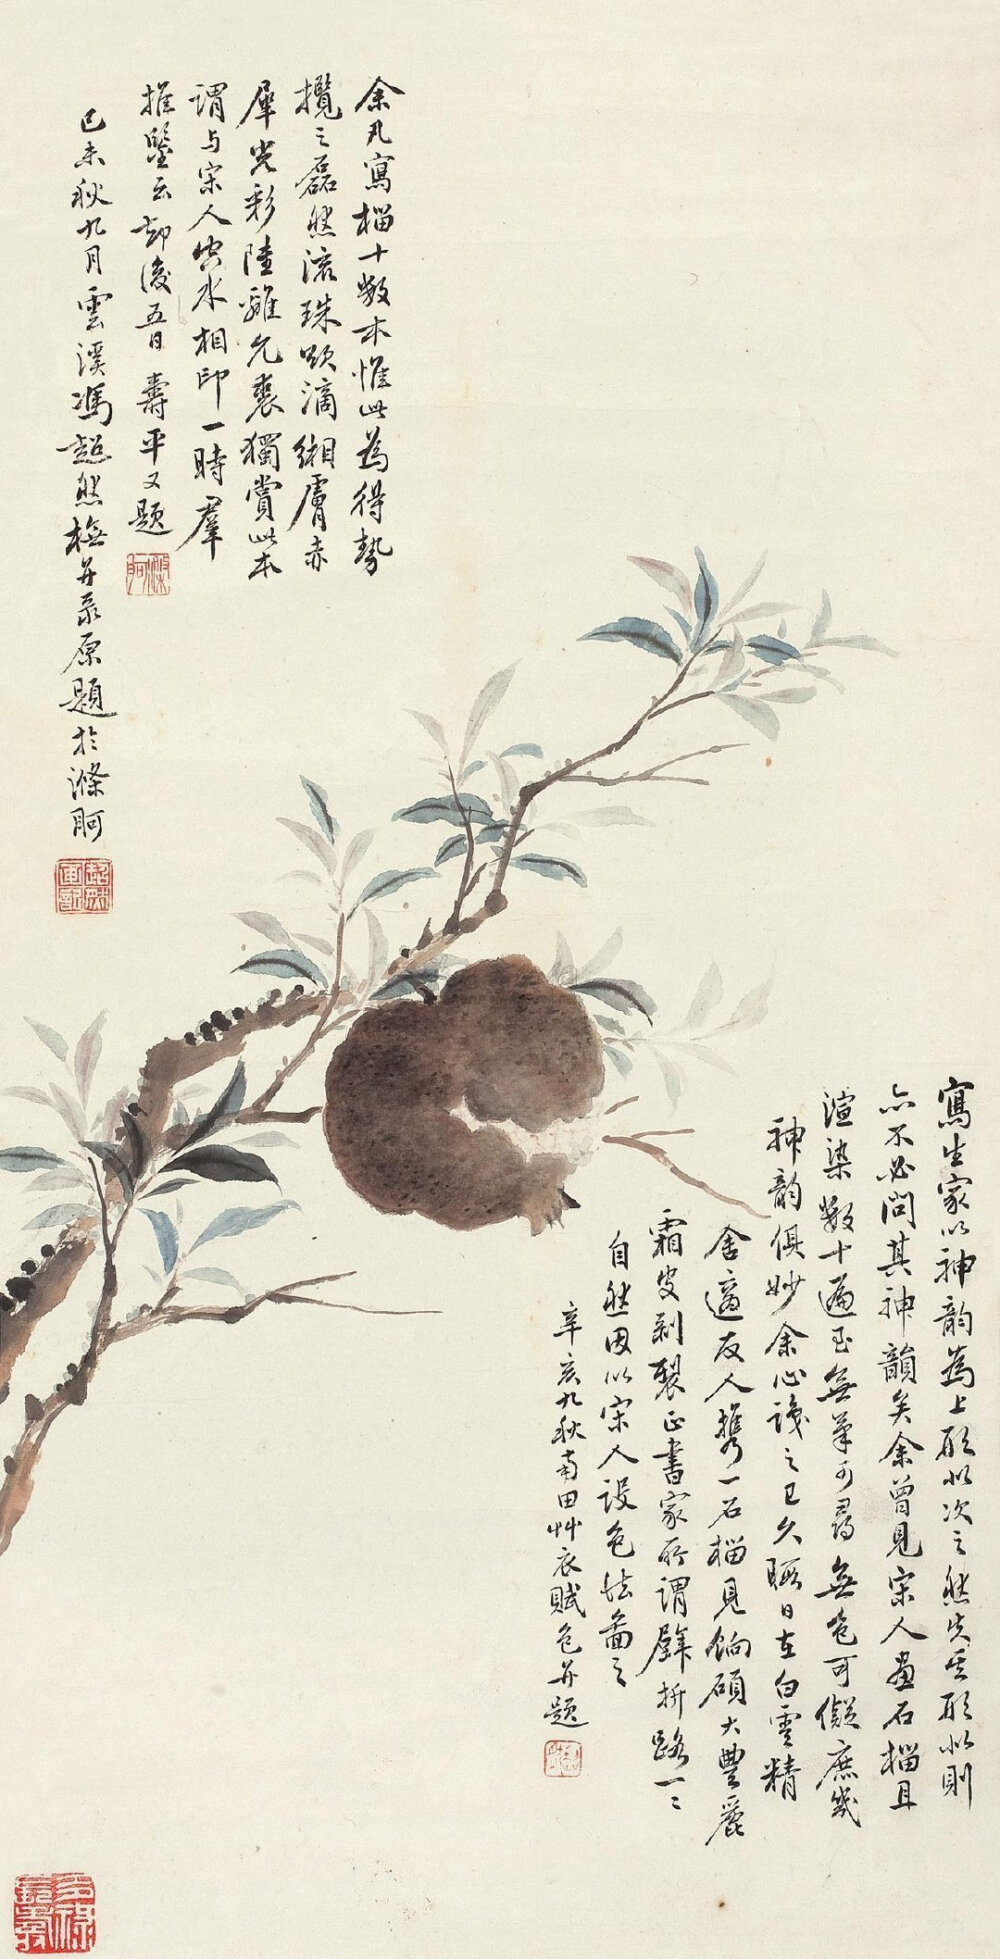 余凡寫榴十數本惟此為得勢
攬之磊然流珠欲滴緗膚赤
犀光彩陸離允裘獨賞此本
謂与宋人尖水相印一時羣
推鑒云却後五日壽平又題
己未秋九月雲溪馮超然橅并录原題於滌舸
寫生家以神韵為上形似次之然失其形似則
亦不必問其神韻矣余曾見宋人畫石榴且
渲染數十遍至無筆可尋無色可儗庶幾
神韵俱妙余心識之已久暇日在白雲精
舍適友人携一石榴見餉碩大豐麗
霜皮剥裂正書家所謂擘拆路一一
自然因以宋人設色法畣之
辛亥九秋南田艸衣賦色并題